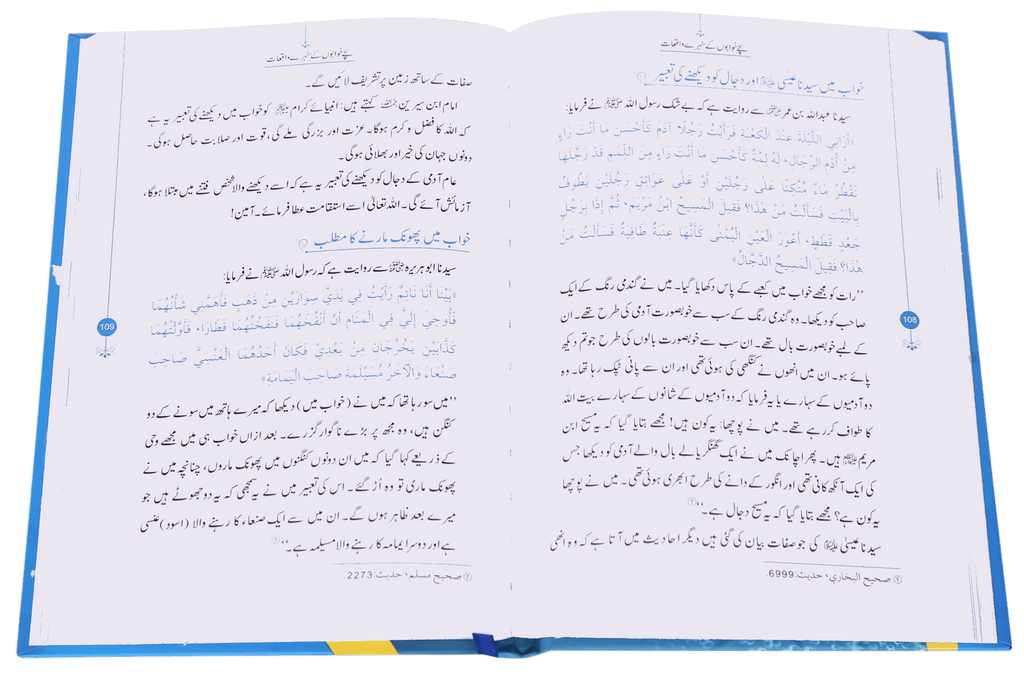 سچے خوابوں کے سنہرے واقعات
خواب میں سیدنا عیسیٰ علیہ السلام اور دجال کو دیکھنے کی تعبیر
سیدنا عبداللہ بن عمر رضی اللہ عنہما سے روایت ہے کہ بے شک رسول اللہ ﷺ نے فرمایا:
«أَرَانِي اللَّيْلَةَ عِنْدَ الْكَعْبَةِ فَرَأَيْتُ رَجُلًا آدَمَ كَأَحْسَنِ مَا أَنْتَ رَاءٍ
مِنْ أُدْمِ الرِّجَالِ، لَهُ لِمَّةٌ كَأَحْسَنِ مَا أَنْتَ رَاءٍ مِنَ اللِّمَمِ قَدْ رَجَّلَهَا
تَقْطُرُ مَاءً مُتَّكِئًا عَلَى رَجُلَيْنِ أَوْ عَلَى عَوَاتِقِ رَجُلَيْنِ يَطُوفُ
بِالْبَيْتِ فَسَأَلْتُ مَنْ هٰذَا؟ فَقِيلَ الْمَسِيحُ ابْنُ مَرْيَمَ، ثُمَّ إِذَا بِرَجُلٍ
جَعْدٍ قَطَطٍ، أَعْوَرِ الْعَيْنِ الْيُمْنَى كَأَنَّهَا عِنَبَةٌ طَافِيَةٌ فَسَأَلْتُ مَنْ
هٰذَا؟ فَقِيلَ الْمَسِيحُ الدَّجَّالُ»
’’رات کو مجھے خواب میں کعبے کے پاس دکھایا گیا۔ میں نے گندمی رنگ کے ایک
صاحب کو دیکھا۔ وہ گندمی رنگ کے سب سے خوبصورت آدمی کی طرح تھے۔ ان
کے لمبے خوبصورت بال تھے۔ ان سب سے خوبصورت بالوں کی طرح جو تم دیکھ
پائے ہو۔ ان میں انھوں نے کنگھی کی ہوئی تھی اور ان سے پانی ٹپک رہا تھا۔ وہ
دو آدمیوں کے سہارے یا یہ فرمایا کہ دو آدمیوں کے شانوں کے سہارے بیت اللہ
کا طواف کر رہے تھے۔ میں نے پوچھا: یہ کون ہیں؟ مجھے بتایا گیا کہ یہ مسیح ابن
مریم علیہ السلام ہیں۔ پھر اچانک میں نے ایک گھنگریالے بال والے آدمی کو دیکھا جس
کی ایک آنکھ کانی تھی اور انگور کے دانے کی طرح ابھری ہوئی تھی۔ میں نے پوچھا
یہ کون ہے؟ مجھے بتایا گیا کہ یہ مسیح دجال ہے۔‘‘①
سیدنا عیسیٰ علیہ السلام کی جو صفات بیان کی گئی ہیں دیگر احادیث میں آتا ہے کہ وہ انھی
① صحیح البخاري، حدیث:6999.
108
سچے خوابوں کے سنہرے واقعات
صفات کے ساتھ زمین پر تشریف لائیں گے۔
امام ابن سیرین رحمہ اللہ کہتے ہیں: انبیائے کرام علیہم السلام کو خواب میں دیکھنے کی تعبیر یہ ہے
کہ اللہ کا فضل و کرم ہوگا۔ عزت اور بزرگی ملے گی، قوت اور صلابت حاصل ہوگی۔
دونوں جہان کی خیر اور بھلائی ہوگی۔
عام آدمی کے دجال کو دیکھنے کی تعبیر یہ ہے کہ اسے دیکھنے والا شخص فتنے میں مبتلا ہوگا،
آزمائش آئے گی۔ اللہ تعالیٰ اسے استقامت عطا فرمائے۔ آمین!
خواب میں پھونک مارنے کا مطلب
سیدنا ابو ہریرہ رضی اللہ عنہ سے روایت ہے کہ رسول اللہ ﷺ نے فرمایا:
«بَيْنَا أَنَا نَائِمٌ رَأَيْتُ فِي يَدَيَّ سِوَارَيْنِ مِنْ ذَهَبٍ فَأَهَمَّنِي شَأْنُهُمَا
فَأُوحِيَ إِلَيَّ فِي الْمَنَامِ أَنْ أَنْفُخَهُمَا فَنَفَخْتُهُمَا فَطَارَا، فَأَوَّلْتُهُمَا
كَذَّابَيْنِ يَخْرُجَانِ مِنْ بَعْدِي فَكَانَ أَحَدُهُمَا الْعَنْسِيَّ صَاحِبَ
صَنْعَاءَ وَالْآخَرُ مُسَيْلَمَةَ صَاحِبَ الْيَمَامَةِ»
’’میں سو رہا تھا کہ میں نے (خواب میں) دیکھا کہ میرے ہاتھ میں سونے کے دو
کنگن ہیں، وہ مجھ پر بڑے ناگوار گزرے۔ بعد ازاں خواب ہی میں مجھے وحی
کے ذریعے کہا گیا کہ میں ان دونوں کنگنوں میں پھونک ماروں، چنانچہ میں نے
پھونک ماری تو وہ اُڑ گئے۔ اس کی تعبیر میں نے یہ سمجھی کہ یہ دو جھوٹے ہیں جو
میرے بعد ظاہر ہوں گے۔ ان میں سے ایک صنعاء کا رہنے والا (اسود) عنسی
ہے اور دوسرا یمامہ کا رہنے والا مسیلمہ ہے۔‘‘①
① صحیح مسلم، حدیث:2273.
109